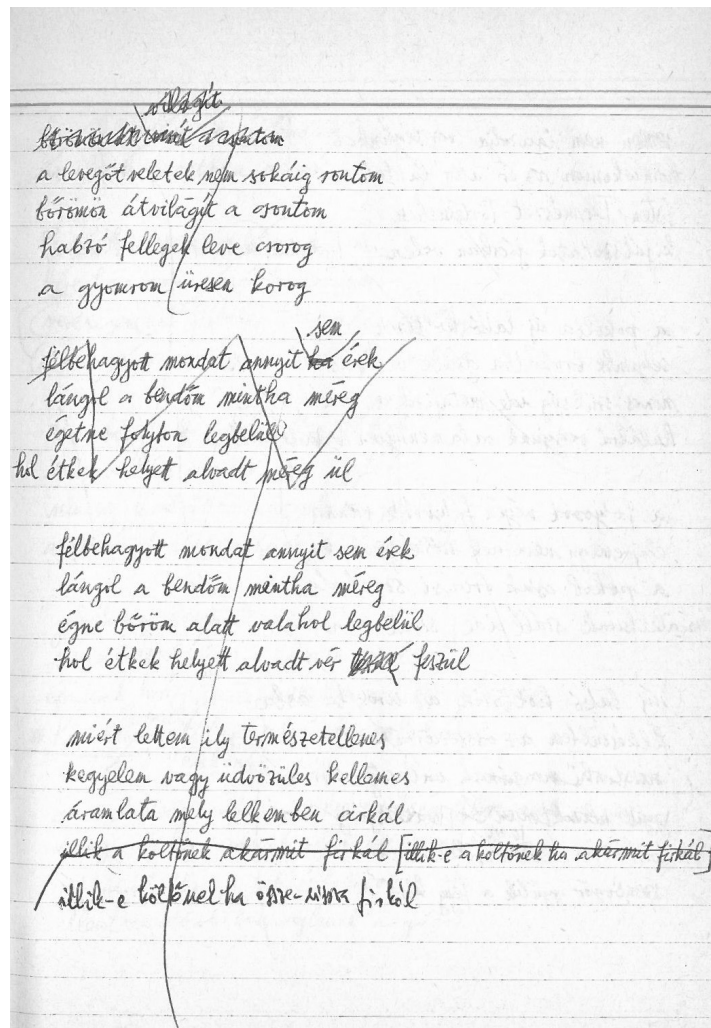 világít
a levegőt veletek nem sokáig rontom
bőrömön átvilágít a csontom
habzó fellegek leve csorog
a gyomrom üresen korog
sem
félbehagyott mondat annyit ha érek
lángol a bendőm mintha méreg
égetne folyton legbelül
hol étkek helyett alvadt méreg ül
félbehagyott mondat annyit sem érek
lángol a bendőm mintha méreg
égne bőröm alatt valahol legbelül
hol étkek helyett alvadt vér feszül
miért lettem ily természetellenes
kegyelem vagy üdvözülés kellemes
áramlata mely lelkemben cirkál
illik a költőnek akármit firkál [illik-e a költőnek ha akármit firkál]
illik-e költőnek ha össze-vissza firkál